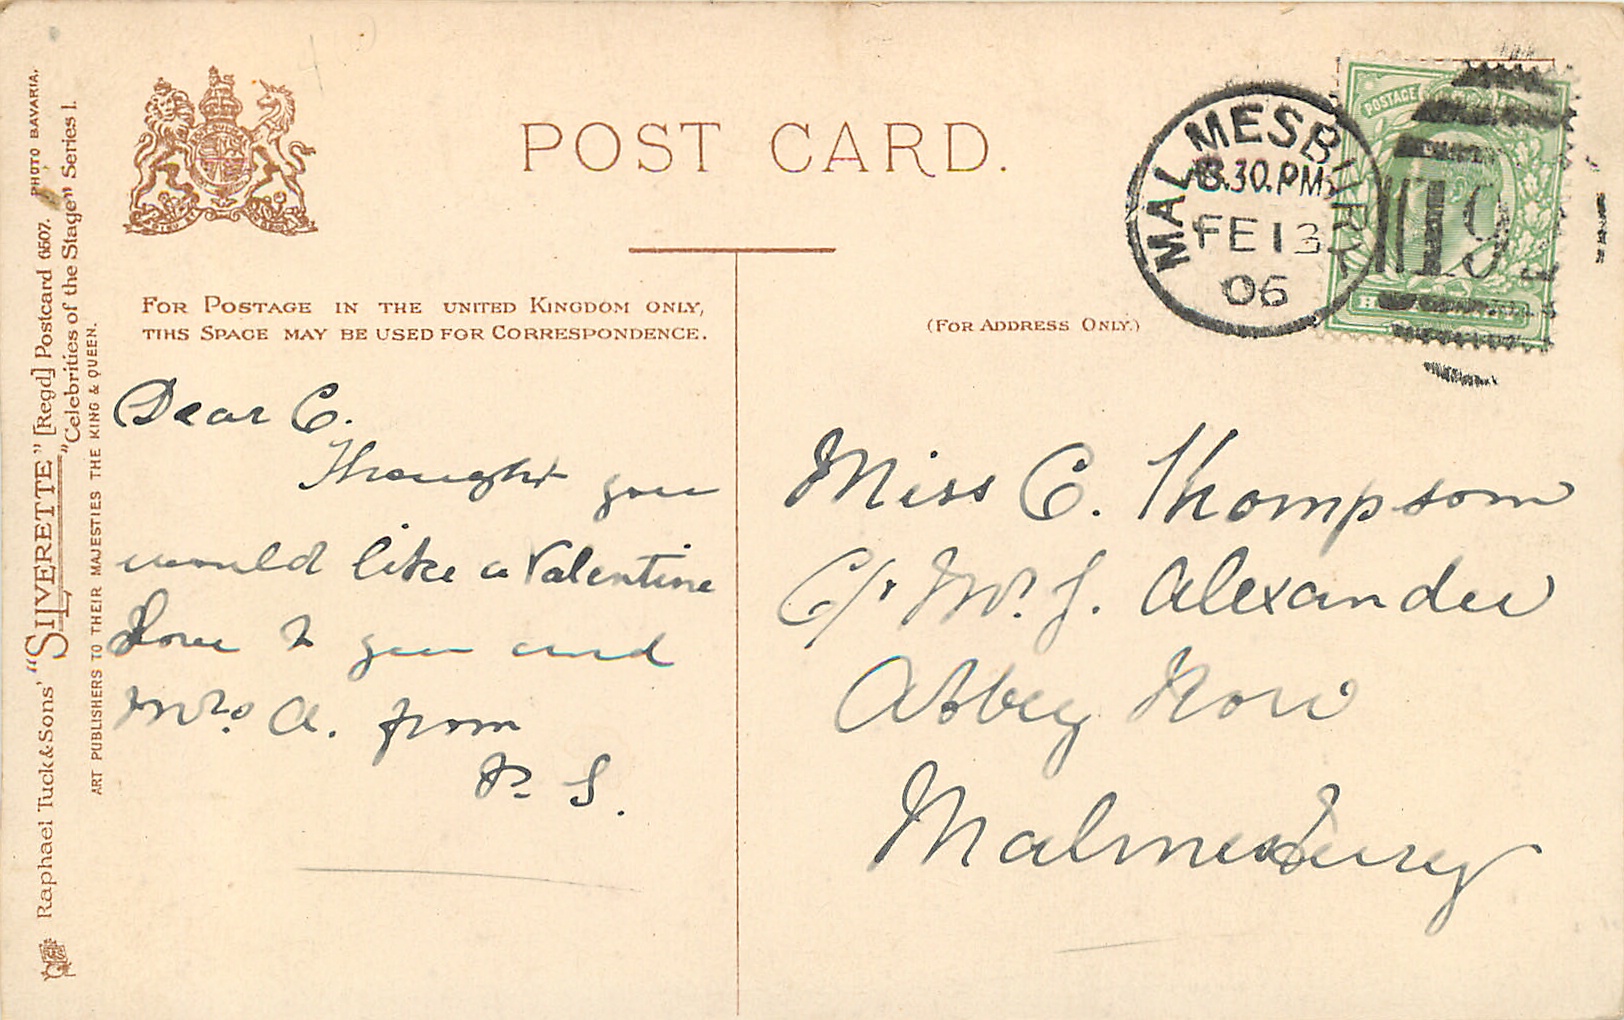 Raphael Tuck & Sons' "SILVERETTE" [Regd] Postcard 6607. PHOTO BAVARIA.
"Celebrities of the Stage" Series I.
ART PUBLISHERS TO THEIR MAJESTIES THE KING & QUEEN.
POST CARD.
FOR POSTAGE IN THE UNITED KINGDOM ONLY,
THIS SPACE MAY BE USED FOR CORRESPONDENCE.
(FOR ADDRESS ONLY.)
MALMESBURY
8.30.PM
FE 13
06
19
POSTAGE
Dear C.
Thought you
would like a Valentine
Love to you and
Mrs A. from
S.
Miss C. Thompson
C/o Mr. J. Alexander
Abbey Row
Malmesbury